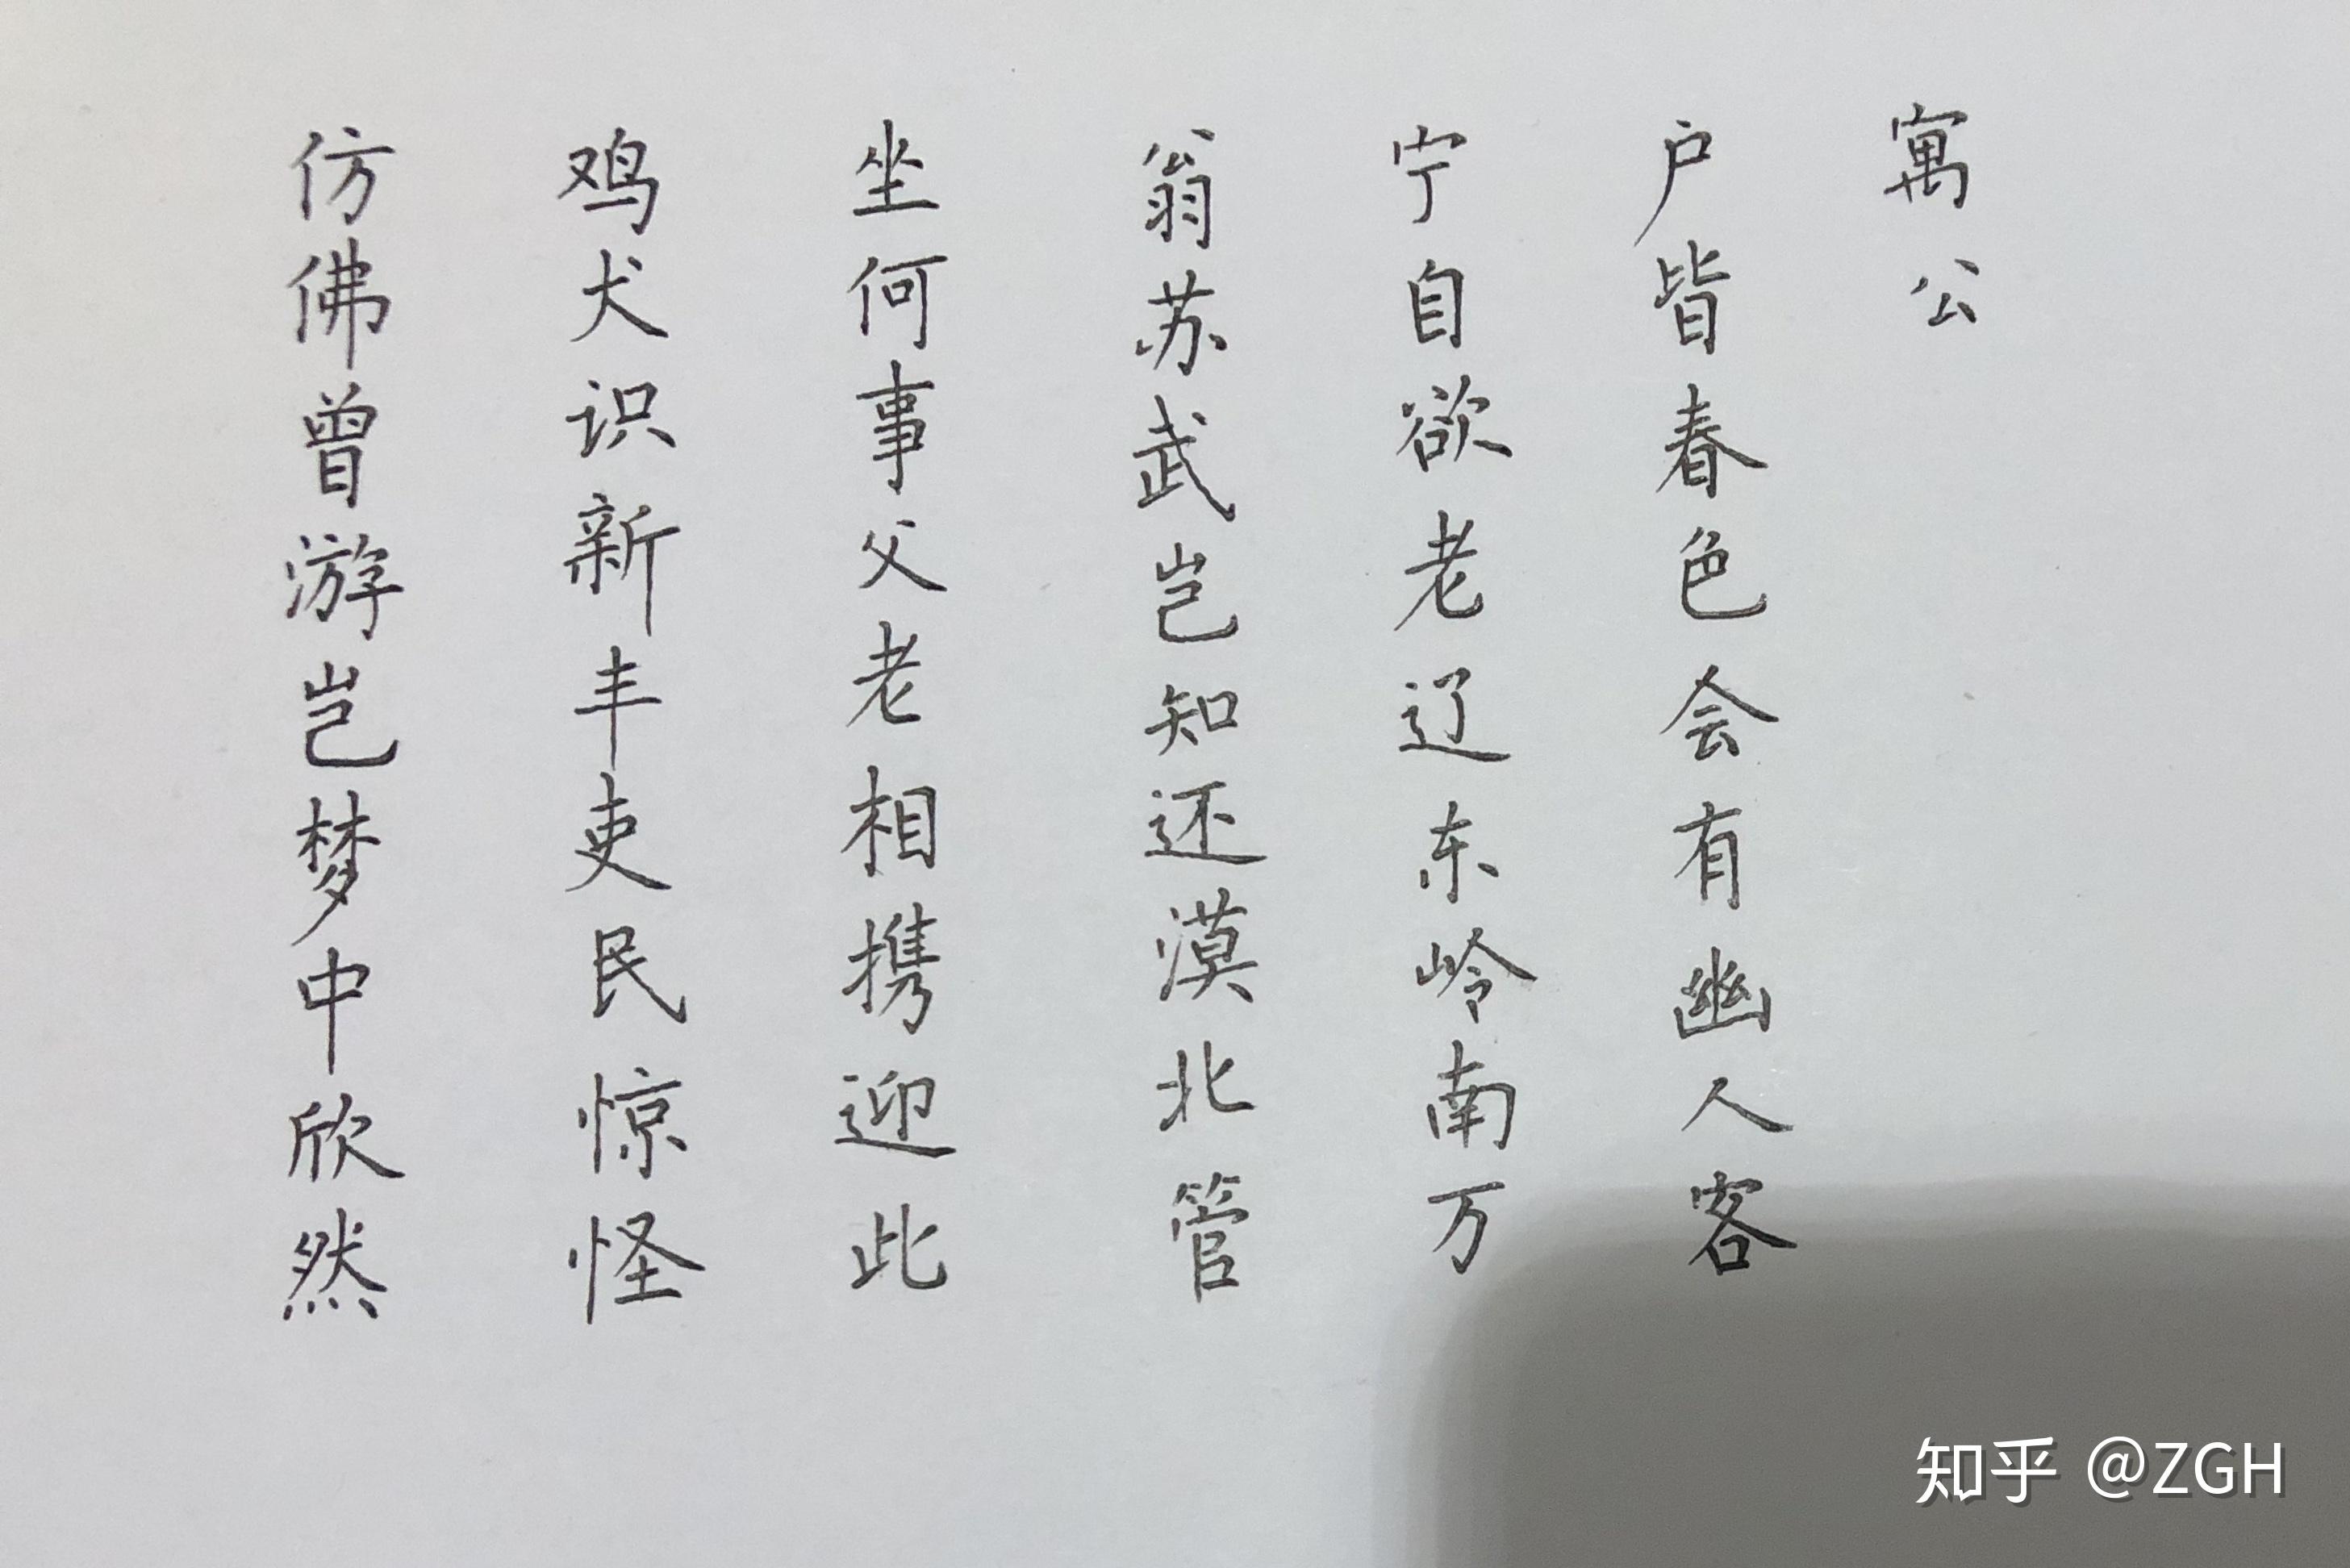 仿佛曾游岂梦中欣然
鸡犬识新丰吏民惊怪
坐何事父老相携迎此
翁苏武岂知还漠北管
宁自欲老辽东岭南万
户皆春色会有幽人客
寓公
知乎 @ZGH